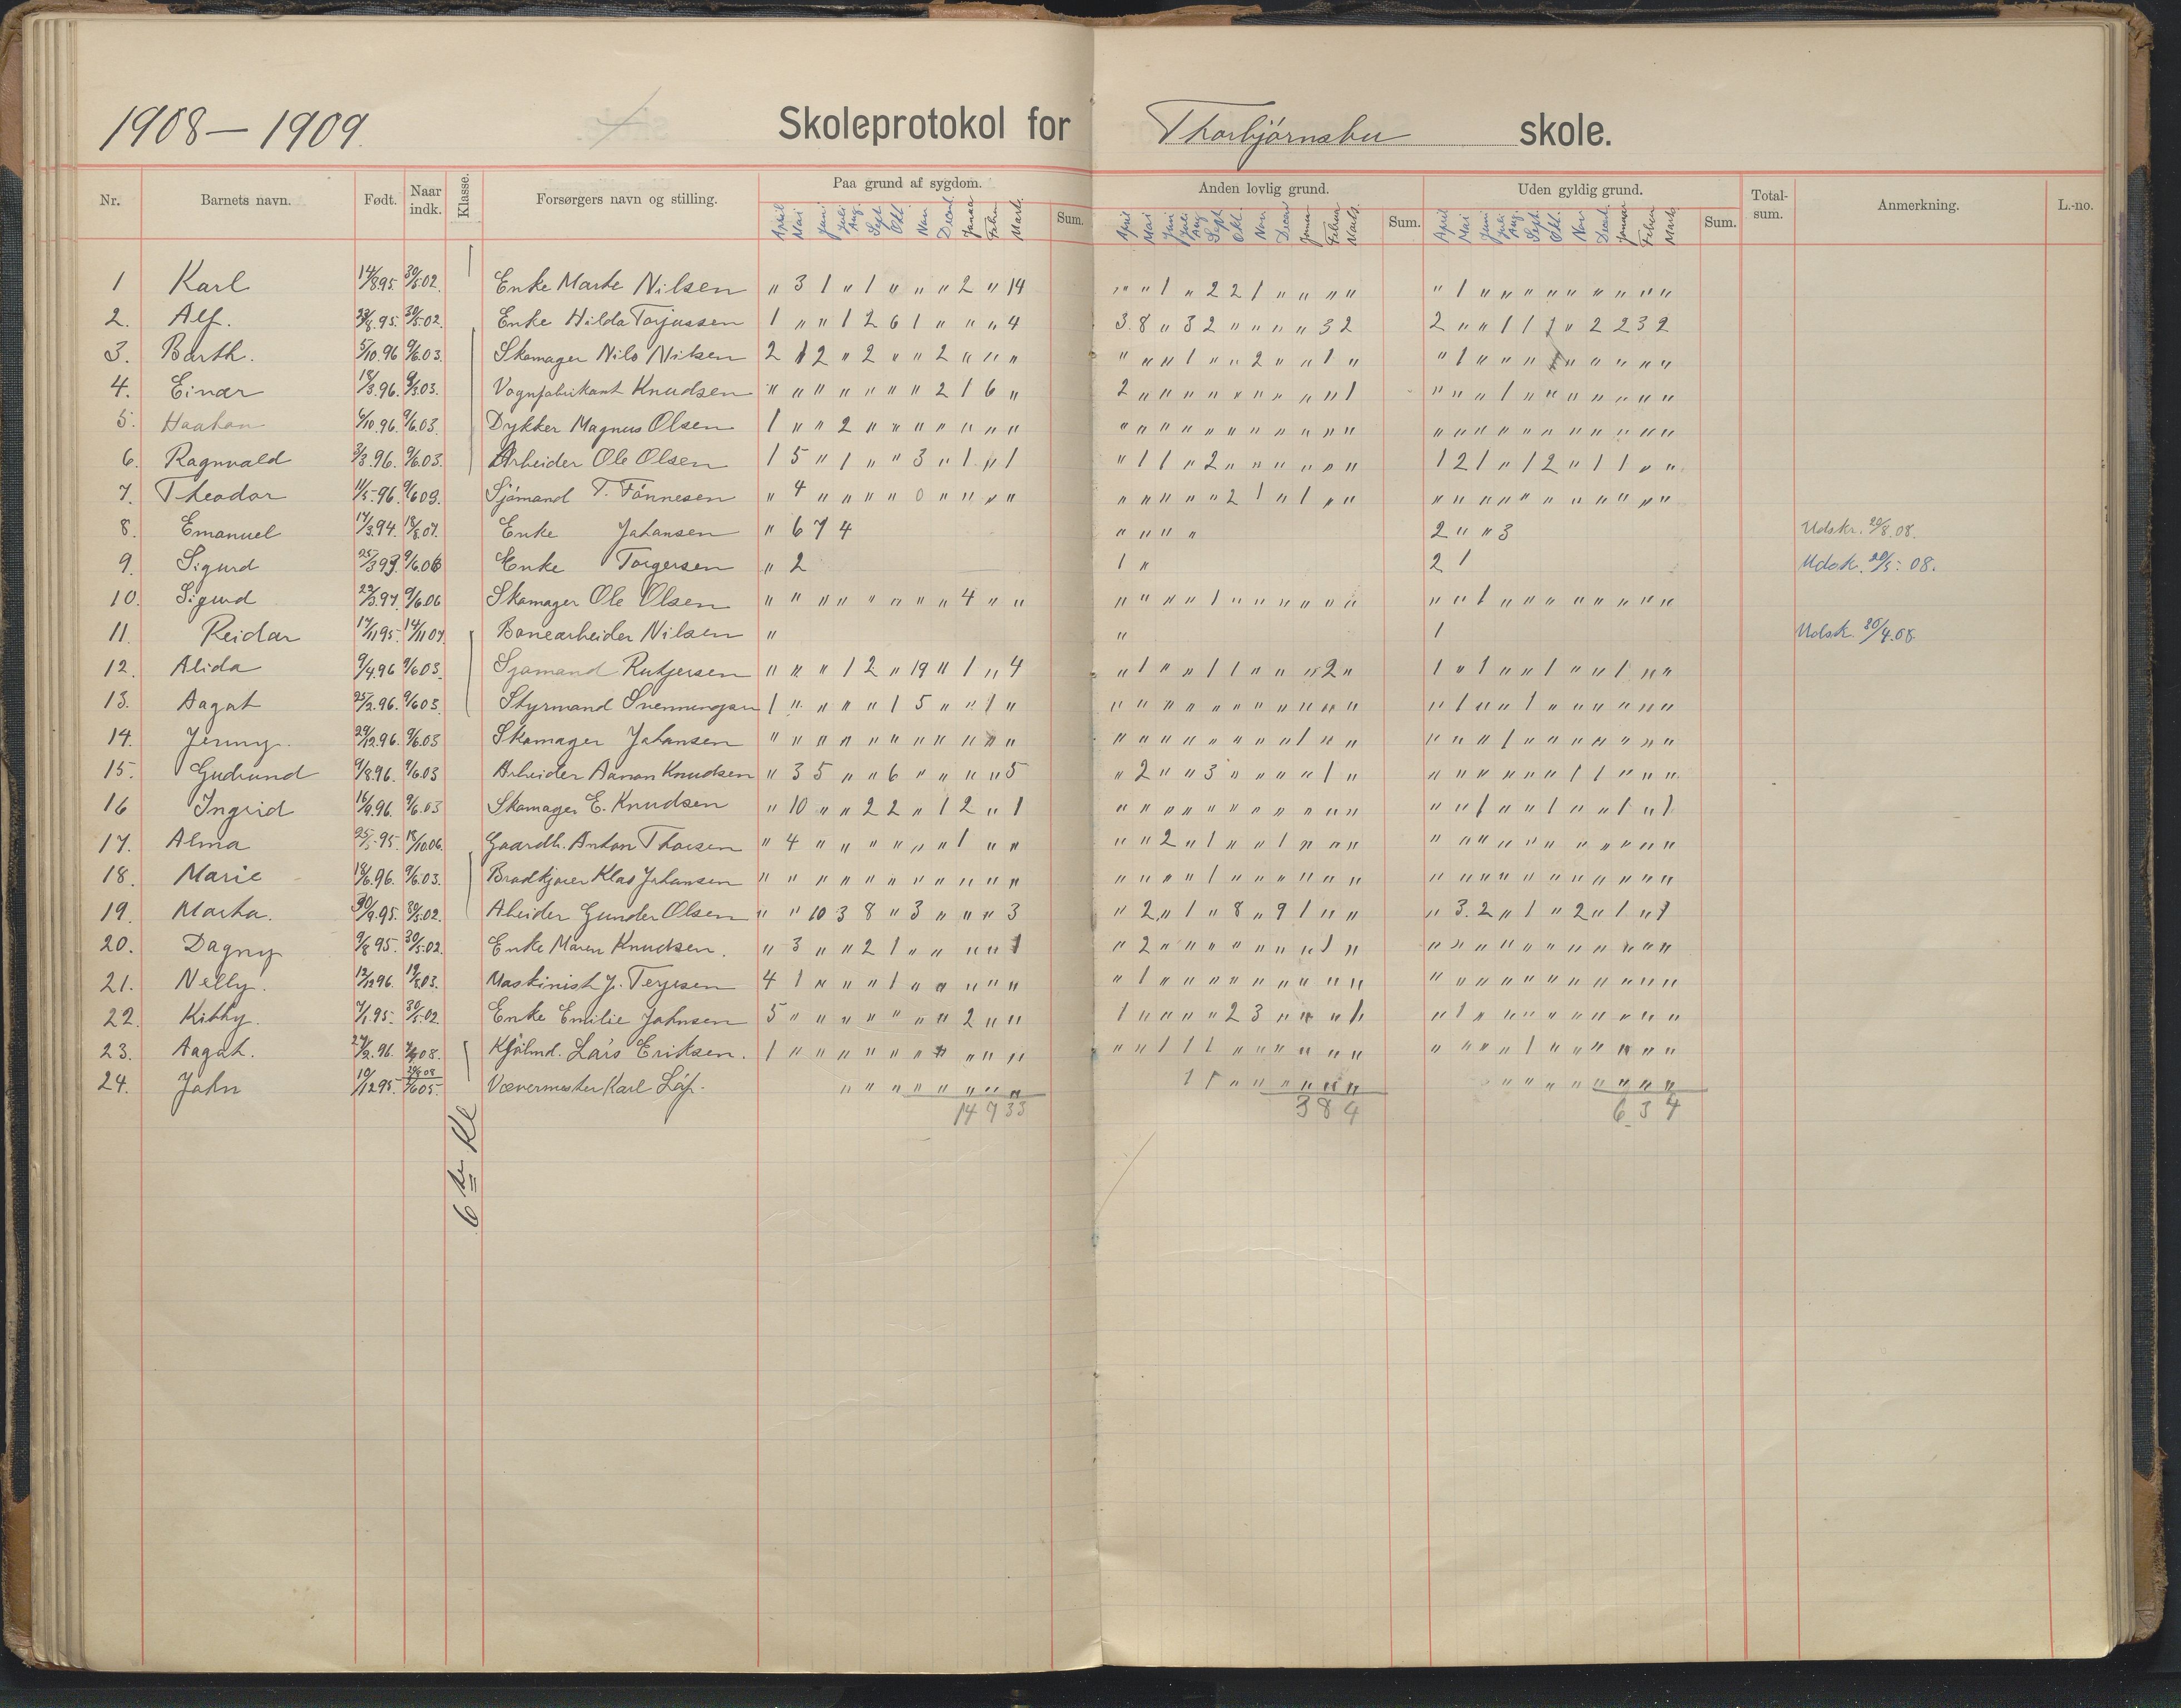 1908-1909. Skoleprotokol for Thorbjørnsbu skole.
Nr. Barnets navn. Født. Naar indk. Klasse. Forsørgers navn og stilling. Paa grund af sygdom. Sum. Anden lovlig grund. Sum. Uden gyldig grund. Sum. Total-sum. Anmerkning. L.-no.
April Mai Juni Juli Aug. Sept. Okt. Nov Decbr. Januar Februar Marts
1 Karl 14/8 95. 30/5 02. Enke Marte Nilsen " 3 1 " 1 " " " 2 " 14 " " 1 " 2 2 1 " " " " " 1 " " " " " " " " "
2. Alf. 95. 30/5 02. Enke Hilda Torjussen 1 " " 1 2 6 1 " " " 4 3. 8 " 3 2 " " " " 3 2 2 " " 1 1 1 " 2 2 3 2
3. Barth. 5/10. 96 9/6. 03. Skomager Nils Nilsen 2 1 2 " 2 " " 2 " " " " " " 1 " " 2 " " 1 " " 1 " " " " " " " "
4. Einar 18/3. 96. 03. Vognfabrikant Knudsen " " " " " " " 2 1 6 " 2 " " " " " " " " " 1 " " " 1 " " " " " " "
5. Haakon 6/10. 96. 9/6. 03. Dykker Magnus Olsen 1 " " 2 " " " " " " " " " " " " " " " " " " " " " " " " " " " " "
6. Ragnvald 3/3. 96. 9/6. 03. Arbeider Ole Olsen 1 5 " 1 " " 3 " 1 " 1 " 1 1 " 2 " " " " " " 1 2 1 " 1 2 " 1 1 " "
7. Theodor 11/5. 96. 9/6 03. Sjömand T. Fönnesen " 4 " " " " 0 " " " " " " " " " 2 1 " 1 " " " " " " " " " " " " "
8. Emanuel 14/3. 94. 18/8. 07. Enke Johansen " 6 7 4 " " " " 2 " " 3 Udskr. 20/8. 08.
9. Sigurd 25/3 93 9/6. 06 Enke Torgersen " 2 1 " 2 1 Udsk. 20/5. 08.
10. Sigurd 97. 9/6. 06 Skomager Ole Olsen " " " " " " " " 4 " " " " " " 1 " " " " " " " " 1 " " " " " " " "
11. Reidar 17/11 95. 14/11 07. Banearbeider Nilsen " " 1 Udsk. 30/4. 08.
12. Alida 9/4. 96 9/6 03. Sjømand Rutjersen " " " 1 2 " 19 " 1 " 4 " 1 " " 1 1 " " " 2 " 1 " 1 " " 1 " " 1 " "
13. Aagot 25/2. 96. 9/6 03. Styrmand Svenningsen 1 " " " " 1 5 " " 1 " " " " " " " " " " " " " 1 " " 1 " " " " " "
14. Jenny. 29/12. 96. 9/6. 03 Skomager Johansen " " " " " " " " " " " " " " " " " " " 1 " " " " " 1 " " " " " " "
15. Gudrund 9/8. 96. 9/6. 03 Arbeider Aanon Knudsen " 3 5 " " 6 " " " " 5 " 2 " " 3 " " " " 1 " " " " " " " 1 1 " " "
16 Ingrid 16/9. 96. 9/6. 03 Skomager E. Knudsen " 10 " " 2 2 " 1 2 " 1 " " " " " " " " " " " " " 1 " " 1 " " 1 " 1
17. Alma 25/5. 95. 18/10. 06. Gaardb. Anton Thorsen " 4 " " " " " " 1 " " " " 2 " 1 " " 1 " " " " " " " " " " " " " "
18. Marie 18/6. 96. 9/6. 03. Brødkjører Klas Johansen " " " " " " " " " " " " " " " 1 " " " " " " " " " " " " " " " " "
19. Marta. 30/9. 95. 30/5. 02. Abeider Gunder Olsen " " 10 3 8 " 3 " " " 3 " 2 " 1 " 8 " 9 1 " " " 3. 2 " 1 " 2 " 1 " 1
20. Dagny 9/8 95. 30/5. 02. Enke Maren Knudsen. " 3 " " 2 1 " " " " 1 " 2 " " " " " " " 1 " " " " " " " " " " " "
21. Nelly. 12/12 96. 03. Maskinist J. Terjesen 4 1 " " " 1 " " " " " " 1 " " " " " " " " " " " " " " " " " " " " "
22. Kitty. 7/1. 95. 30/5. 02. Enke Emilie Johnsen 5 " " " " " " " 2 " " 1 " " " " 2 3 " " " 1 " 1 " " " " " " " " "
23. Aagot. 96. 08. Kjölmd. Lars Eriksen. 1 " " " " " " " " " " " " 1 1 1 " " " " " " " " " " 1 " " " " " "
24. John 10/12 95. 05. Værermester Karl Löf. " " " " " " " " 1 1 " " " " " " " " " " " " " " "
14 7 33 3 8 4 6 3 4
6te Kl